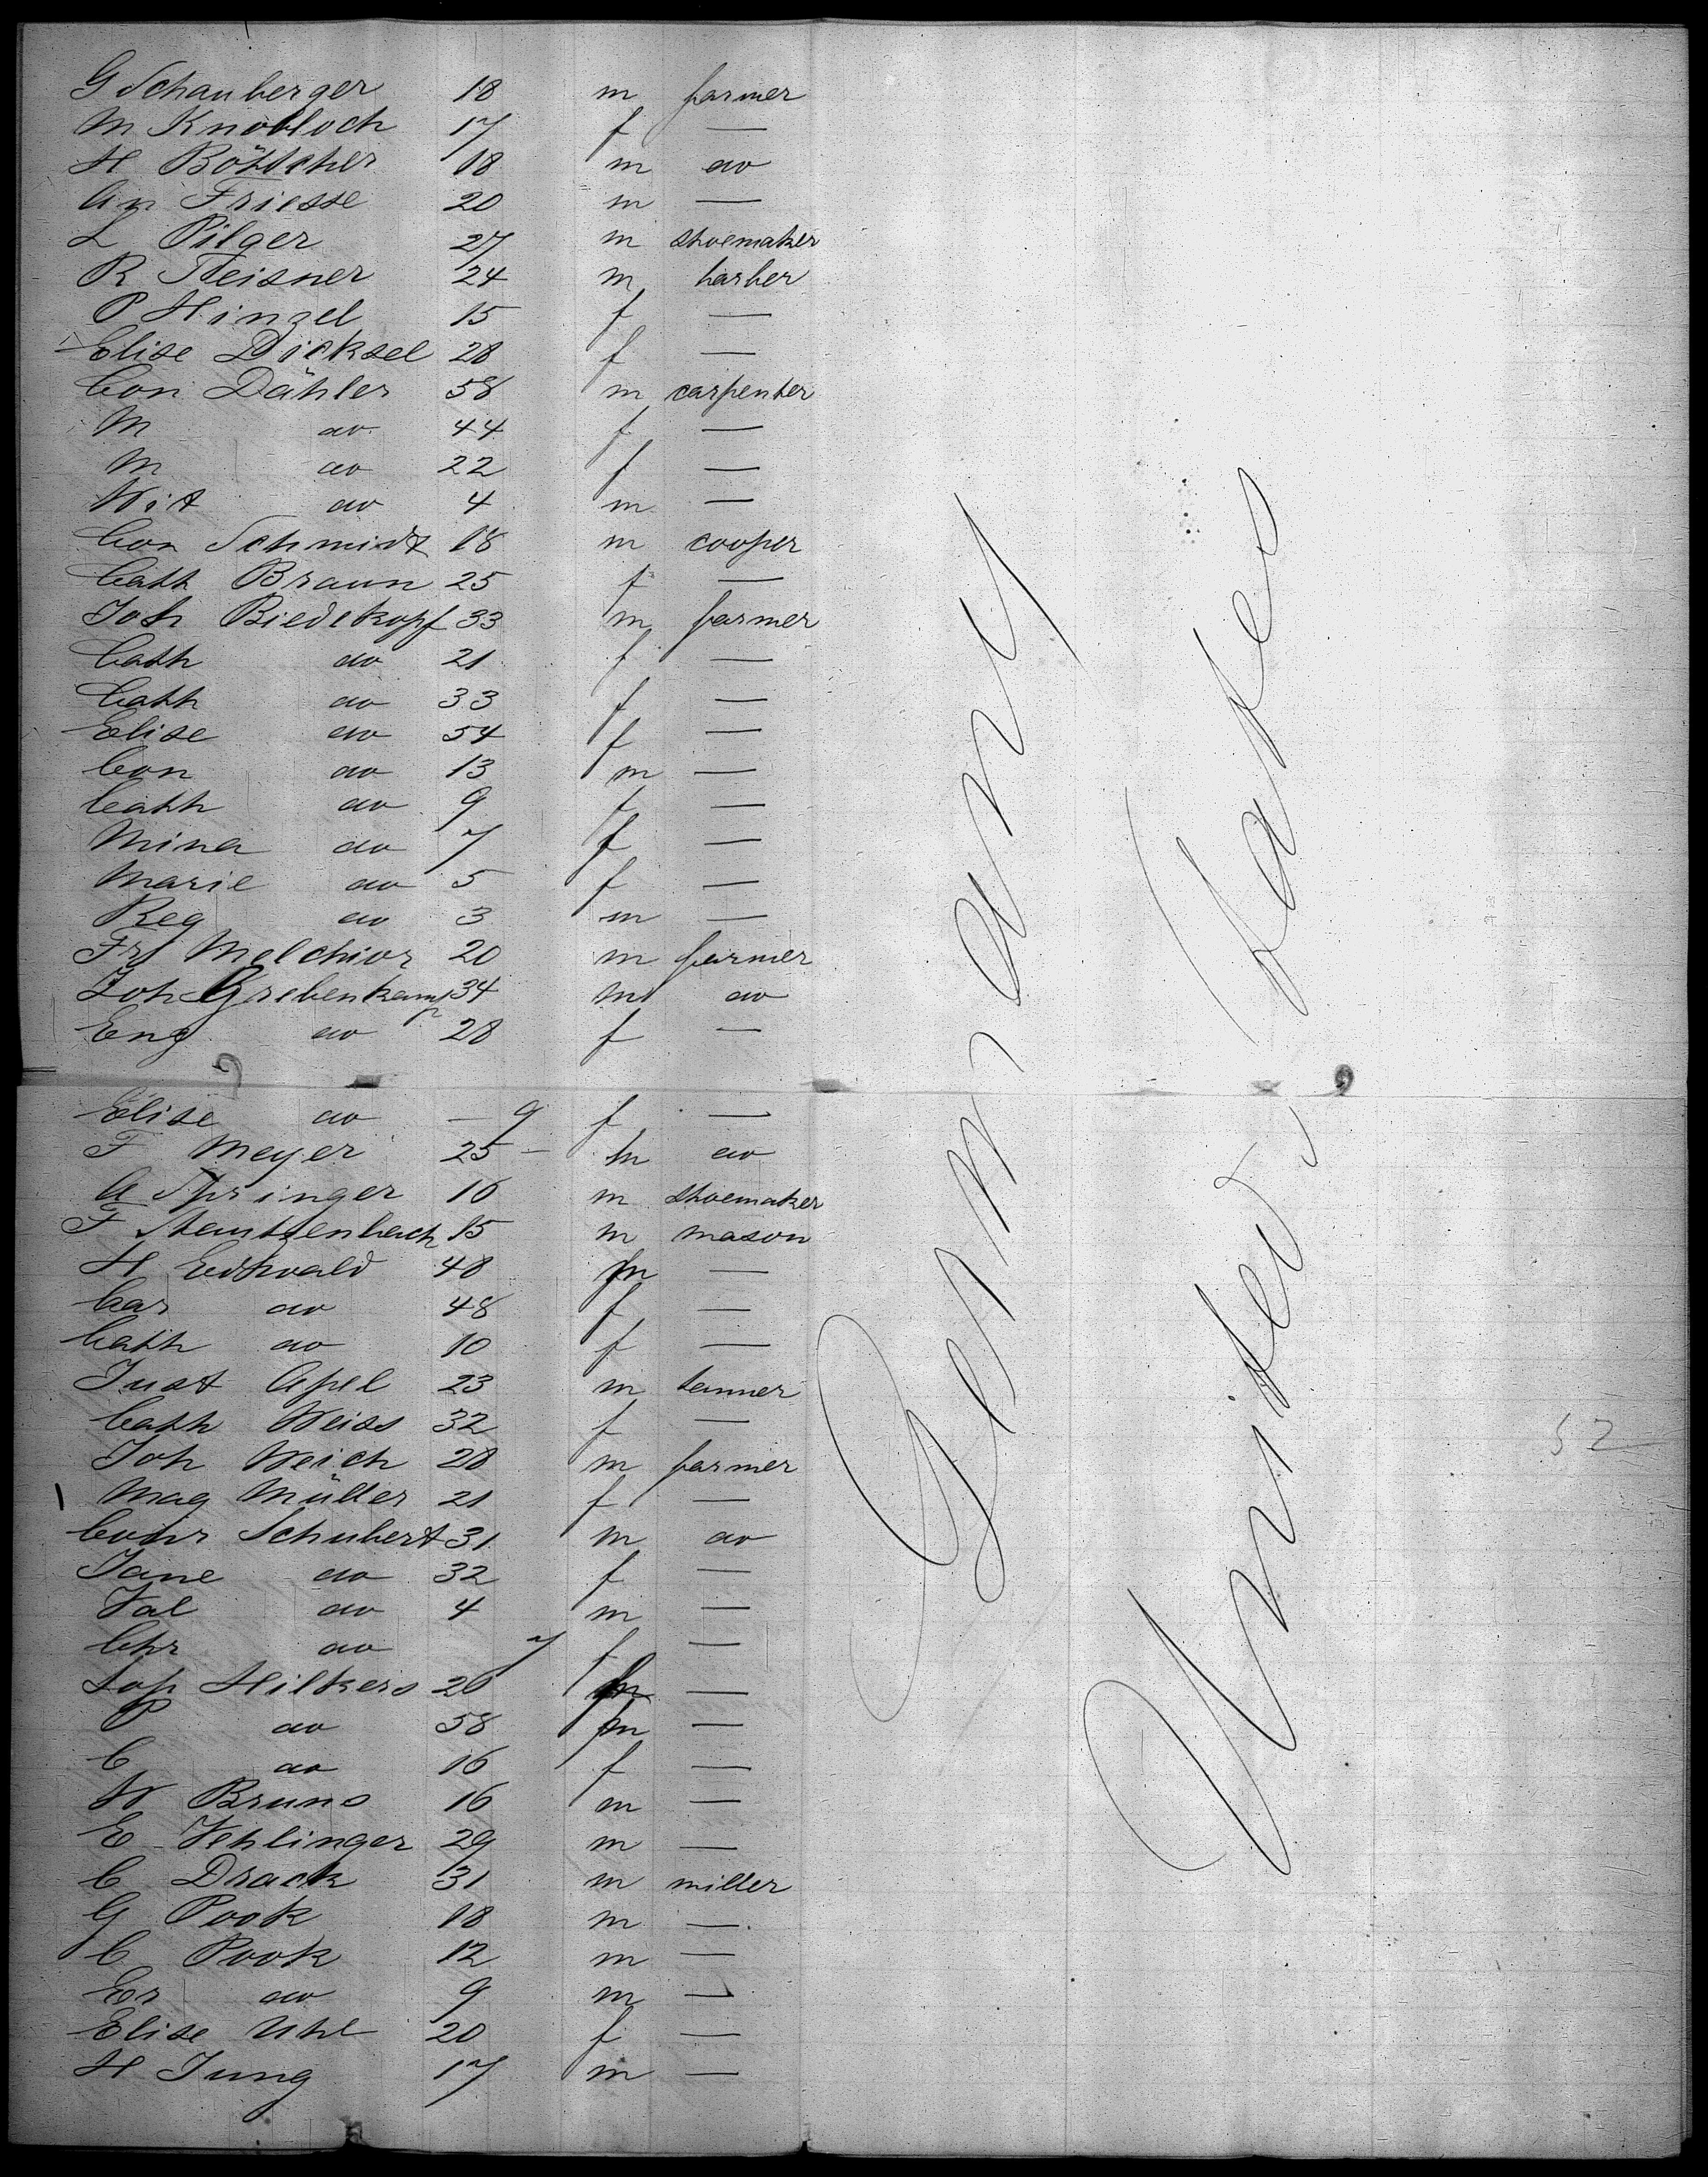 G Schauberger 18 m farmer
M Knobloch 17 f —
H Böttcher 18 m do
An Friesse 20 m —
L Pilger 27 m shoemaker
R Meisner 24 m barber
P Hinzel 15 f —
Elise Dicksel 28 f —
Con Dähler 58 m carpenter
M do 44 f —
M do 22 f —
Wit do 4 m —
Con Schmidt 18 m cooper
Cath Braun 25 f —
Joh Biedekopf 33 m farmer
Cath do 21 f —
Cath do 33 f —
Elise do 54 f —
Con do 13 m —
Cath do 9 f —
Mina do 7 f —
Marie do 5 f —
Reg do 3 m —
Fr Melchior 20 m farmer
Joh Grebenkamp 34 m do
Eng do 28 f —
Elise do — 9 f —
F Meyer 25 — m do
A Springer 16 m shoemaker
F Stautzenbach 15 m mason
H 48 m —
Car do 48 f —
Cath do 10 f —
Just Apel 23 m tanner
Cath Weiss 32 f —
Joh Weich 28 m farmer
Mag Müller 21 f —
Conr Schubert 31 m do
Jane do 32 f —
Val do 4 m —
Chr do 7 f —
Sop Hilkers 20 —
P do 58 m —
C do 16 f —
W Bruns 16 m —
E Vehlinger 29 m —
C Drack 31 m miller
G Pook 18 m —
C Pook 12 m —
Er do 9 m —
Elise Uhl 20 f —
H Jung 17 m —
Germany
United States
52